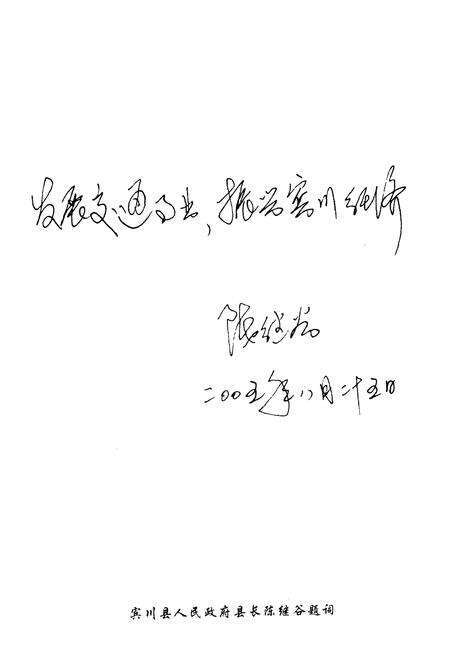 发展交通事业,振兴宾川经济
陈继谷
二〇〇五年八月二十五日
宾川县人民政府县长陈继谷题词